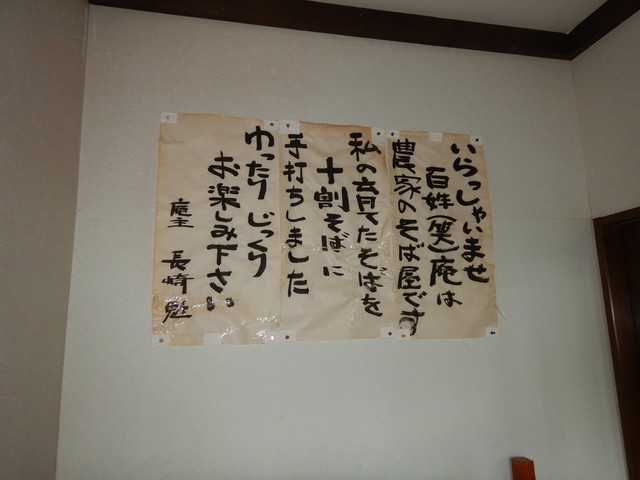 いらっしゃいませ
百姓(笑)庵は
農家のそば屋です
私の育てたそばを
十割そばに
手打ちしました
ゆったりじっくり
お楽しみ下さい。
庵主 長崎